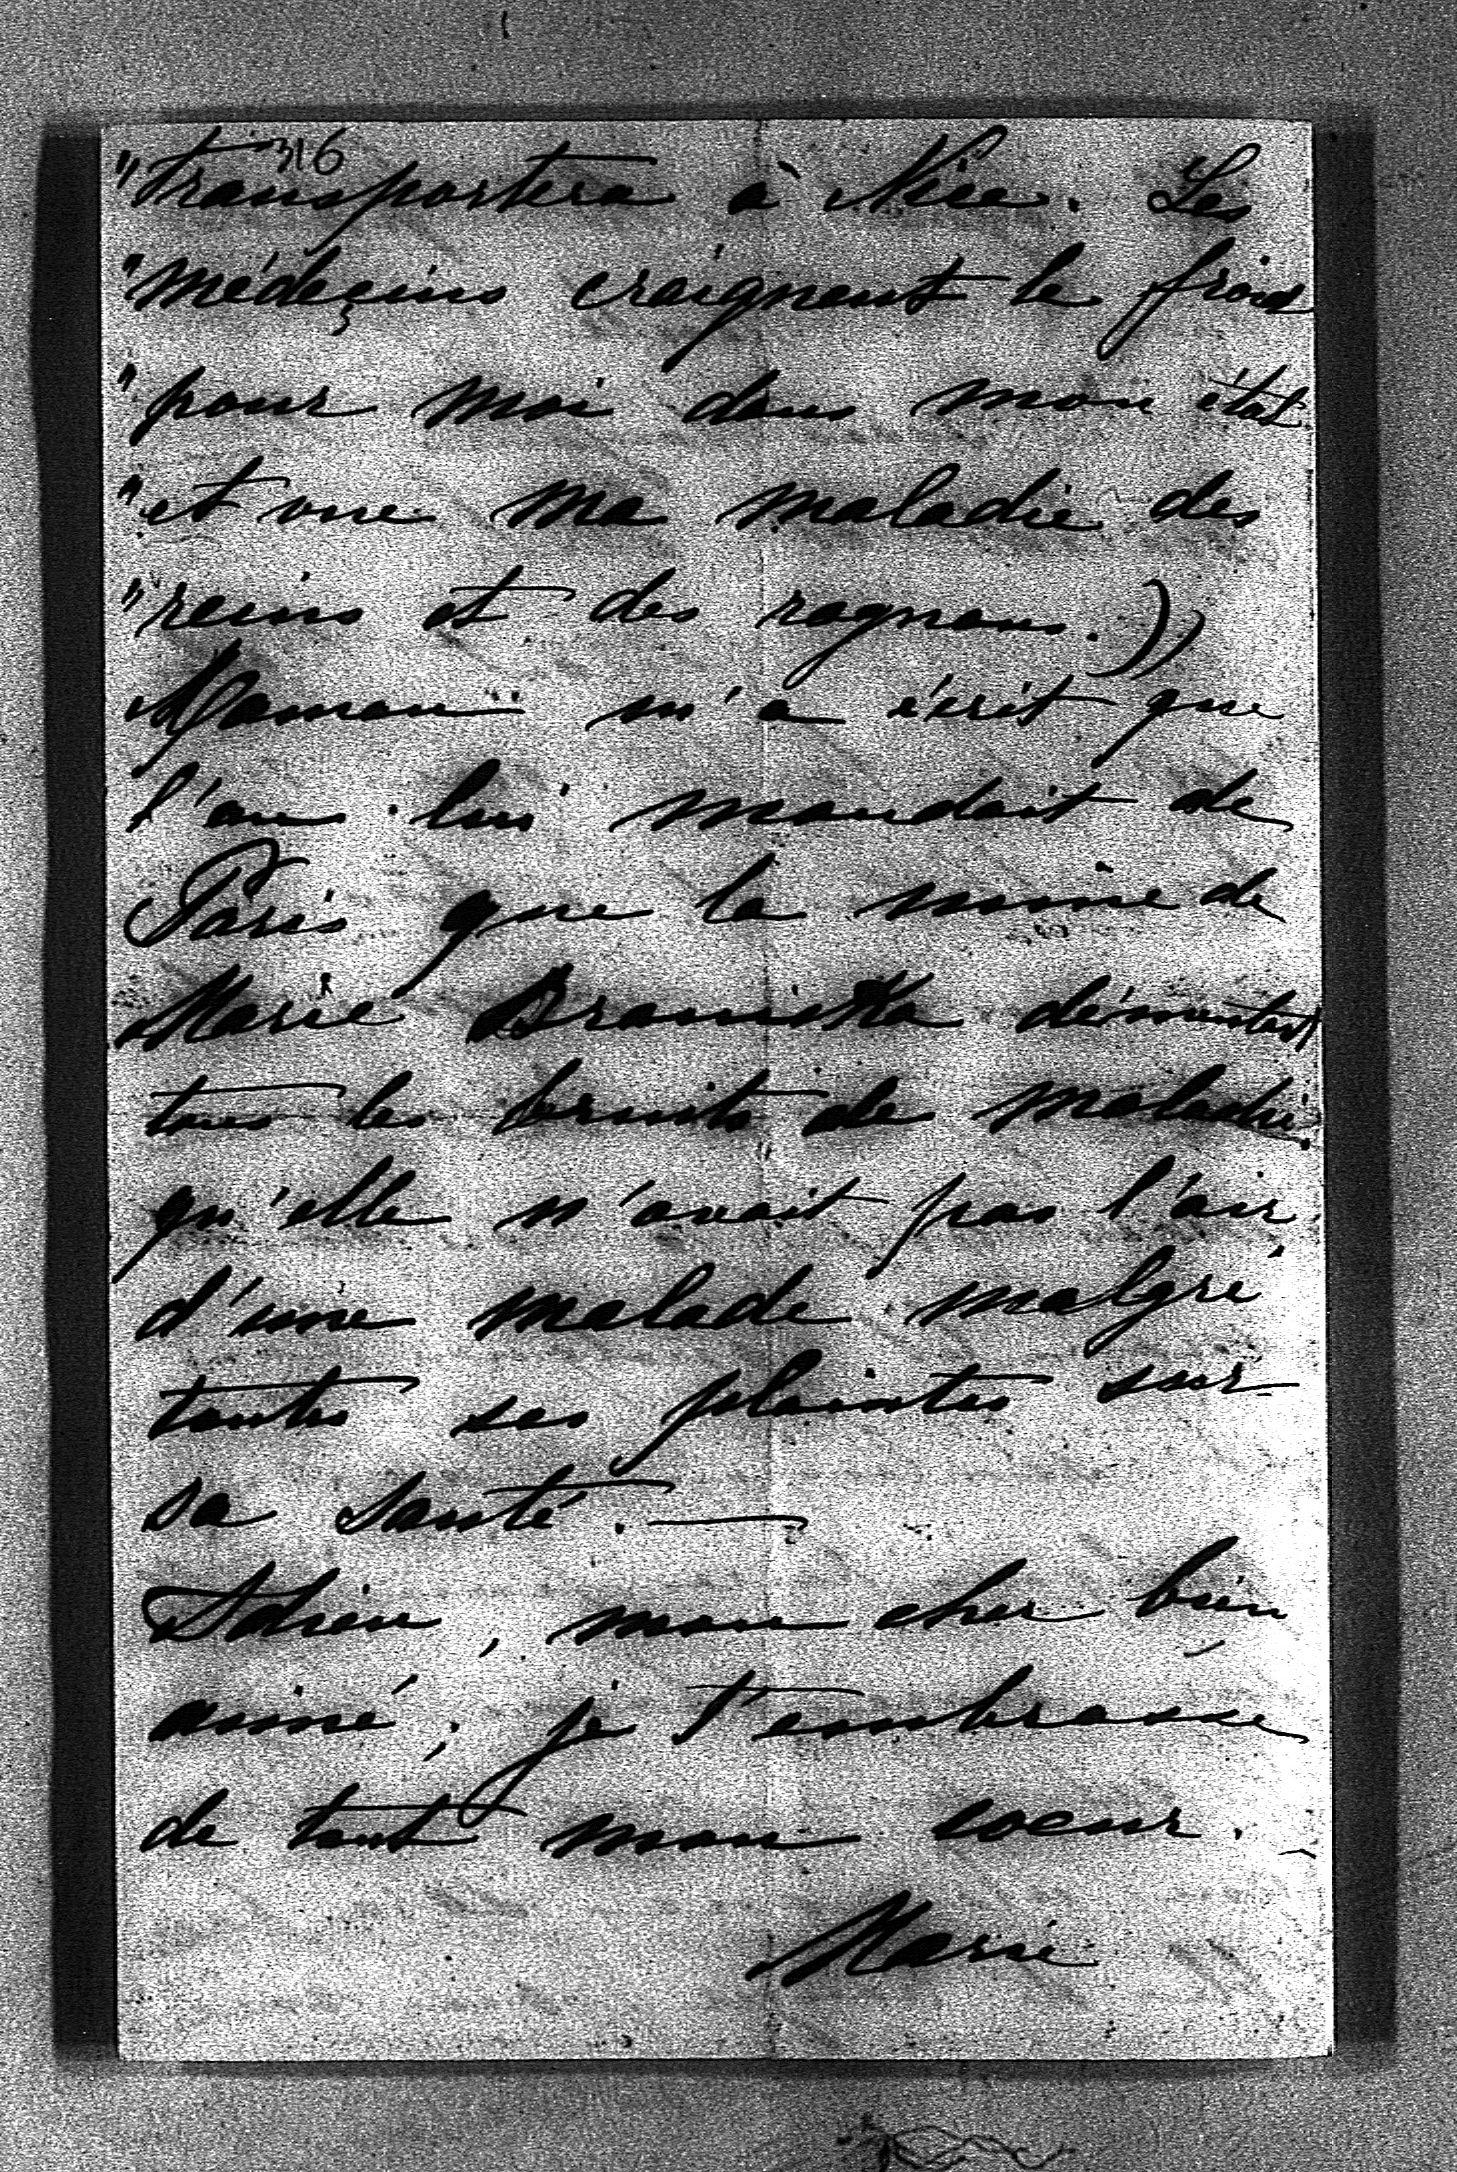 316
"transportera à Nice. Les
"médeçins craignent le froid
"pour moi dans mon état
"et vue ma maladie des
"reins et des rognons.))
Maman m'a écrit que
l'on lui mandait de
Paris que la mine de
Marie Branicka démentait
tous les bruits de maladie.
qu'elle n'avait pas l'air
d'une malade malgré
toutes ses plaintes sur
sa santé. —
Adieu, mon cher bien
aimé; je t'embrasse
de tout mon coeur. —
Marie